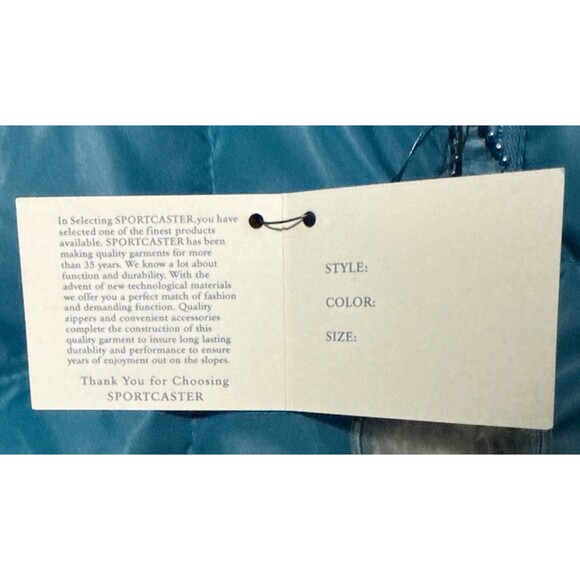 In Selecting SPORTCASTER,you have
selected one of the finest products
available. SPORTCASTER has been
making quality garments for more
than 35 years. We know a lot about
function and durability. With the
advent of new technological materials
we offer you a perfect match of fashion
and demanding function. Quality
zippers and convenient accessories
complete the construction of this
quality garment to insure long lasting
durablity and performance to ensure
years of enjoyment out on the slopes.
Thank You for Choosing
SPORTCASTER
STYLE:
COLOR:
SIZE: